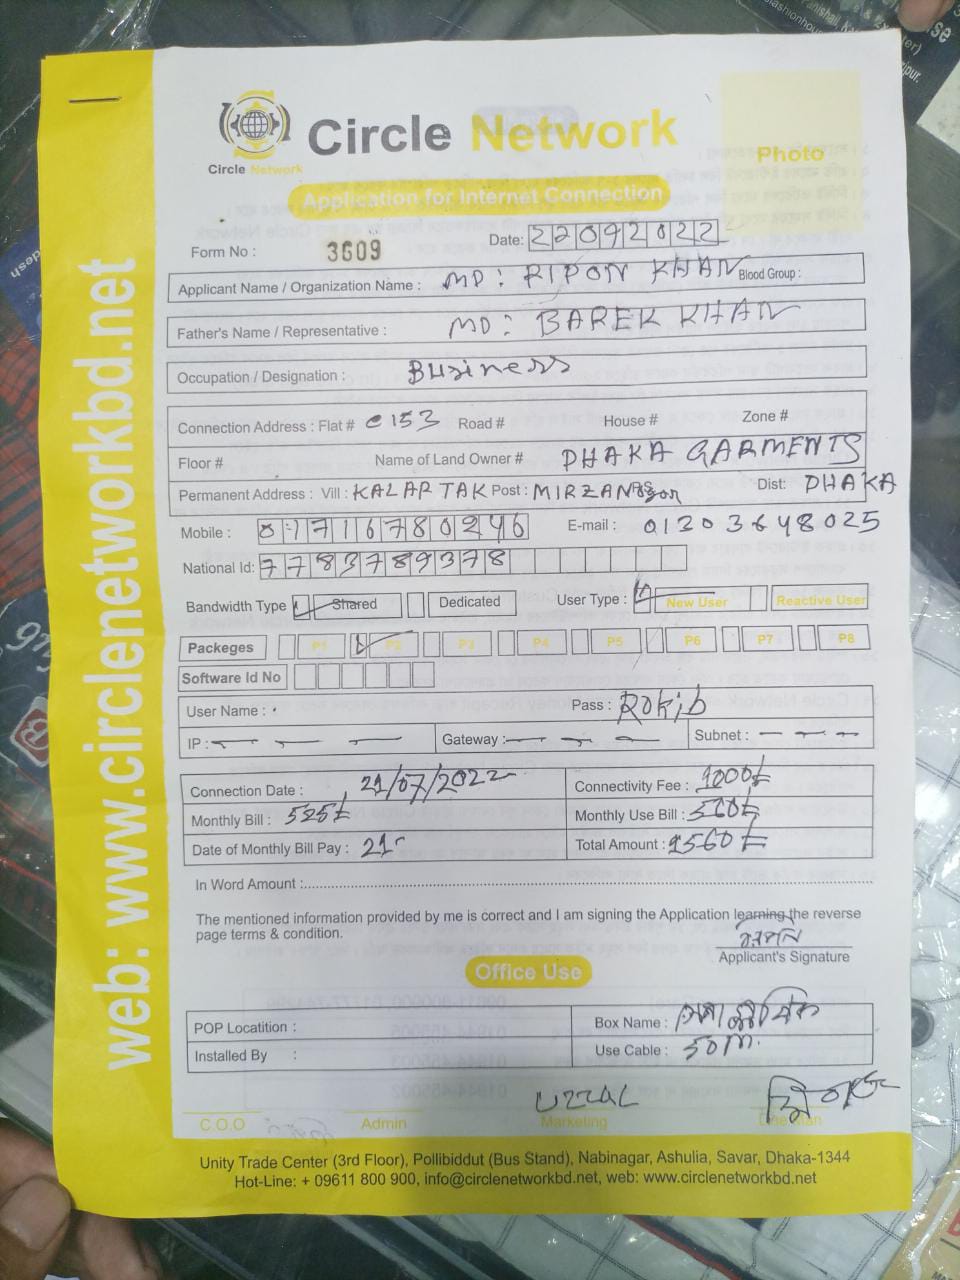 Circle Network
Circle Network
Photo
Application for Internet Connection
Form No : 3609
Date: 22092022
Applicant Name / Organization Name : MD: RIPON KHAN Blood Group :
Father's Name / Representative : MD: BAREK KHAN
Occupation / Designation : Business
Connection Address : Flat # C 153 Road # House # Zone #
Floor # Name of Land Owner # DHAKA GARMENTS
Permanent Address : Vill : KALAR TAK Post : MIRZANagor P.S Dist: DHAKA
Mobile : 01716780246 E-mail : 01303648025
National Id: 7783789378
Bandwidth Type Shared Dedicated User Type : New User Reactive User
Packeges P1 P2 P3 P4 P5 P6 P7 P8
Software Id No
User Name : Pass : Rokib
IP : Gateway : Subnet :
Connection Date : 21/07/2022 Connectivity Fee : 1000৳
Monthly Bill : 525৳ Monthly Use Bill : 560৳
Date of Monthly Bill Pay : 21 Total Amount : 1560৳
In Word Amount :
The mentioned information provided by me is correct and I am signing the Application learning the reverse
page terms & condition.
Applicant's Signature
Office Use
POP Locatition : Box Name :
Installed By : Use Cable : 50m.
UZZAL
C.O.O Admin Marketing Line Man
Unity Trade Center (3rd Floor), Pollibiddut (Bus Stand), Nabinagar, Ashulia, Savar, Dhaka-1344
Hot-Line: + 09611 800 900, info@circlenetworkbd.net, web: www.circlenetworkbd.net
web: www.circlenetworkbd.net